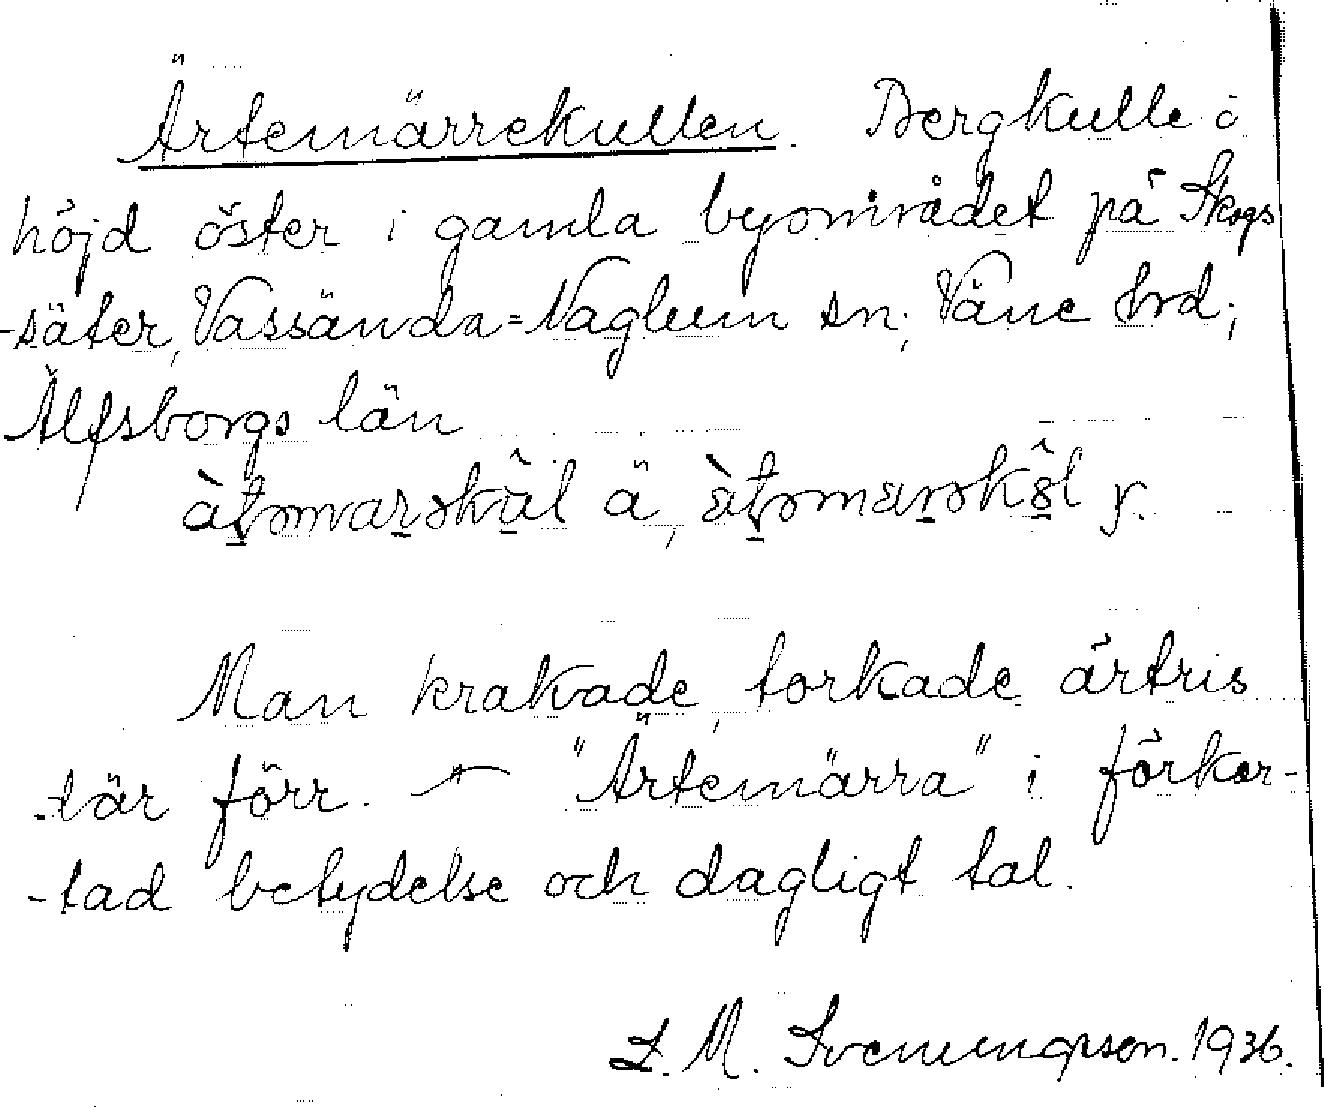 Ärtemärrekullen. Bergkulle å
höjd öster i gamla byområdet på Skogs
-säter, Vassända=Naglum sn; Väne hrd;
Älfsborgs län
ä, y.
Man krakade, torkade ärtris
-där förr. "Ärtemärra" i förkor-
-tad betydelse och dagligt tal.
L. M. Svenungsson. 1936.